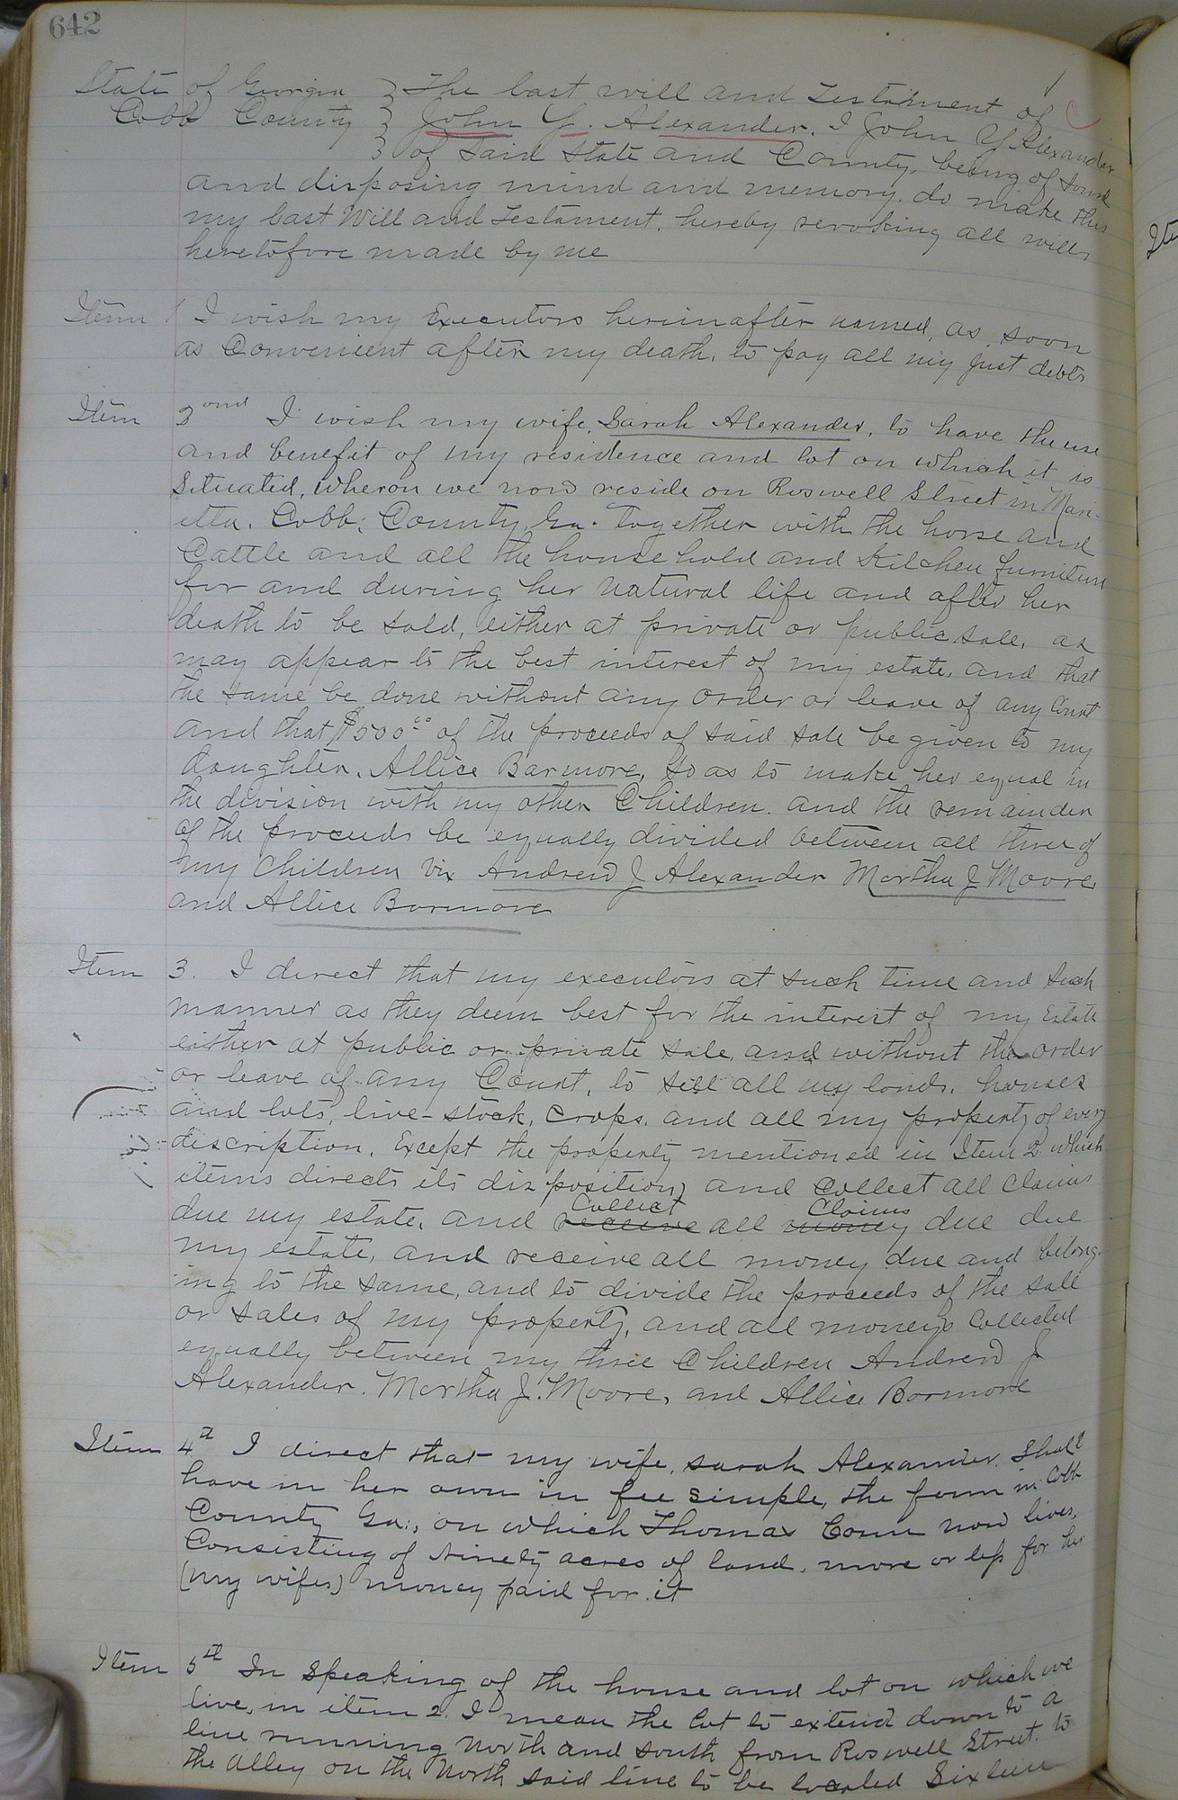 642
State of Georgia } The last will and Testament of
Cobb County } John Y. Alexander. I John Y Alexander
of said State and County, being of sound
and disposing mind and memory. do make this
my last Will and Testament, hereby revoking all wills
heretofore made by me
Item 1 I wish my Executors hereinafter named, as soon
as Convenient after my death, to pay all my just debts
Item 2ond I wish my wife, Sarah Alexander, to have the use
and benefit of my residence and lot on which it is
Situated, wheron we now reside on Roswell Street in Mari-
etta. Cobb, County, Ga. together with the horse and
Cattle and all the household and Kitchen furniture
for and during her natural life and after her
death to be sold, either at private or public sale, as
may appear to the best interest of my estate, and that
the same be done without any order or leave of any Court
and that $ of the proceeds of said sale be given to my
daughter, Allice Barmore, so as to make her equal in
the division with my other Children. and the remainder
of the proceeds be equally divided between all three of
my Children viz Andrew J Alexander Martha J Moore
and Allice Barmore
Item 3. I direct that my executors at such time and such
manner as they deem best for the interest of my Estate
either at public or private sale, and without the order
or leave of any Court, to sell all my lands, houses
and lots, live-stock, crops, and all my property of every
discription, Except the property mentioned in Item 2 which
items directs its disposition, and collect all claims
Collect Claims
due my estate, and receive all money due due
my estate, and receive all money due and belong-
ing to the same, and to divide the proceeds of the sale
or sales of my property, and all moneys collected
equally between my three Children Andrew J
Alexander. Martha J. Moore, and Allice Barmore
Item 4th I direct that my wife, Sarah Alexander, Shall
have in her own in fee simple, the farm in Cobb
County Ga., on which Thomas now lives,
Consisting of Ninety acres of land, more or less for her
(my wifes) money paid for it
Item 5th In Speaking of the house and lot on which we
live, in item 2. I mean the lot to extend down to a
line running North and South from Roswell Street, to
the alley on the North said line to be located Sixteen
Ite